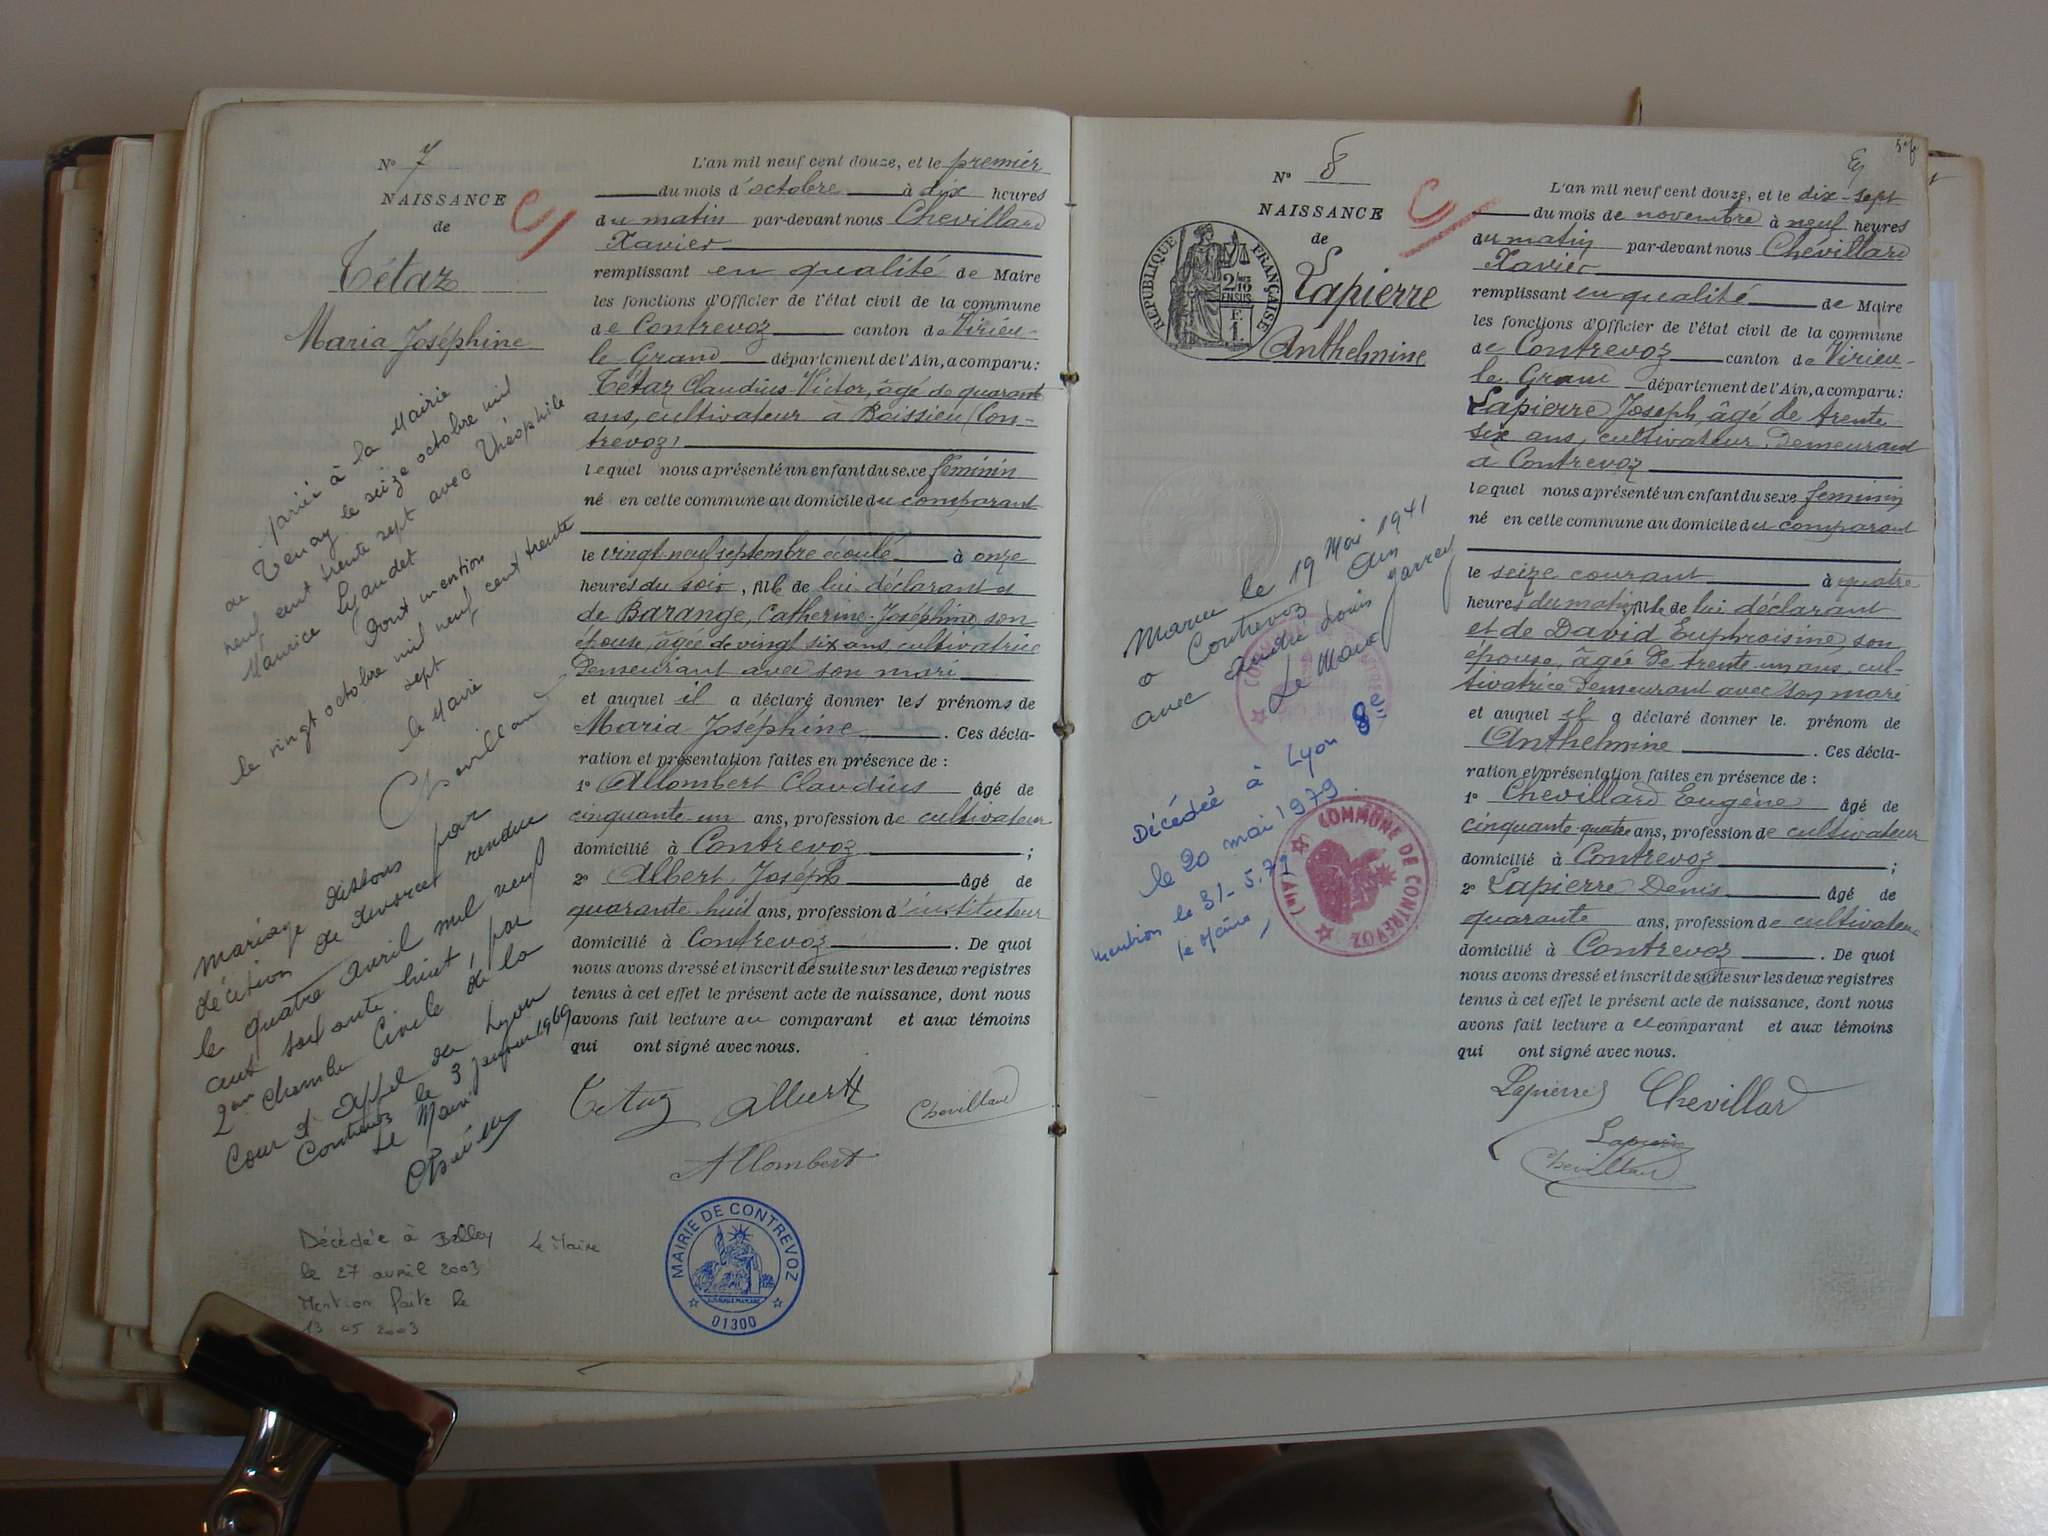 N° 7
NAISSANCE
de
Tétaz
Maria Joséphine
Mariée à la Mairie
de Tenay le seize octobre mil
neuf cent trente sept avec Théophile
Maurice Lyaudet
Dont mention
le vingt octobre mil neuf cent trente
sept
le Maire
Chevillard
Mariage dissous par
décision de divorce rendue
le quatre avril mil neuf
cent soixante huit, par
2ème Chambre Civile de la
Cour d'Appel de Lyon
Contrevoz le 3 janvier 1969
Le Maire
Décédée à Belley
le 27 avril 2003
Mention faite le
13 05 2003
Le Maire
L'an mil neuf cent douze, et le premier
du mois d'octobre à dix heures
du matin par-devant nous Chevillard
Xavier
remplissant en qualité de Maire
les fonctions d'Officier de l'état civil de la commune
de Contrevoz canton de Virieu-
le Grand département de l'Ain, a comparu:
Tétaz Claudius-Victor, âgé de quarante
ans, cultivateur à Boissieu (Con-
trevoz)
lequel nous a présenté un enfant du sexe féminin
né en cette commune au domicile du comparant
le vingt-neuf septembre écoulé à onze
heures du soir, fille de lui déclarant et
de Barange, Catherine-Joséphine, son
épouse, âgée de vingt six ans, cultivatrice
demeurant avec son mari
et auquel il a déclaré donner les prénoms de
Maria Joséphine. Ces décla-
ration et présentation faites en présence de :
1° Allombert Claudius âgé de
cinquante un ans, profession de cultivateur
domicilié à Contrevoz ;
2° Albert Joseph âgé de
quarante huit ans, profession d'instituteur
domicilié à Contrevoz. De quoi
nous avons dressé et inscrit de suite sur les deux registres
tenus à cet effet le présent acte de naissance, dont nous
avons fait lecture au comparant et aux témoins
qui ont signé avec nous.
Tetaz Albert Chevillard
Allombert
MAIRIE DE CONTREVOZ
01300
N° 8
NAISSANCE
de
Lapierre
Anthelmine
REPUBLIQUE FRANÇAISE
2/10
EN SUS
1 F.
Mariée le 19 Mai 1941
a Contrevoz Ain
avec André Louis Jarrey
Le Maire
Décédée à Lyon 8e
le 20 mai 1979
mention le 31-5.79
le Maire
COMMUNE DE CONTREVOZ
(AIN)
L'an mil neuf cent douze, et le dix-sept
du mois de novembre à neuf heures
du matin par-devant nous Chevillard
Xavier
remplissant en qualité de Maire
les fonctions d'Officier de l'état civil de la commune
de Contrevoz canton de Virieu-
le Grand département de l'Ain, a comparu:
Lapierre Joseph, âgé de trente
six ans, cultivateur, demeurant
à Contrevoz
lequel nous a présenté un enfant du sexe féminin
né en cette commune au domicile du comparant
le seize courant à quatre
heures du matin, fille de lui déclarant
et de David Euphroisine, son
épouse, âgée de trente-un ans, cul-
tivatrice demeurant avec son mari
et auquel il a déclaré donner le prénom de
Anthelmine. Ces décla-
ration et présentation faites en présence de :
1° Chevillard Eugène âgé de
cinquante-quatre ans, profession de cultivateur
domicilié à Contrevoz ;
2° Lapierre Denis âgé de
quarante ans, profession de cultivateur
domicilié à Contrevoz. De quoi
nous avons dressé et inscrit de suite sur les deux registres
tenus à cet effet le présent acte de naissance, dont nous
avons fait lecture au comparant et aux témoins
qui ont signé avec nous.
Lapierre Chevillard
Lapierre
Chevillard